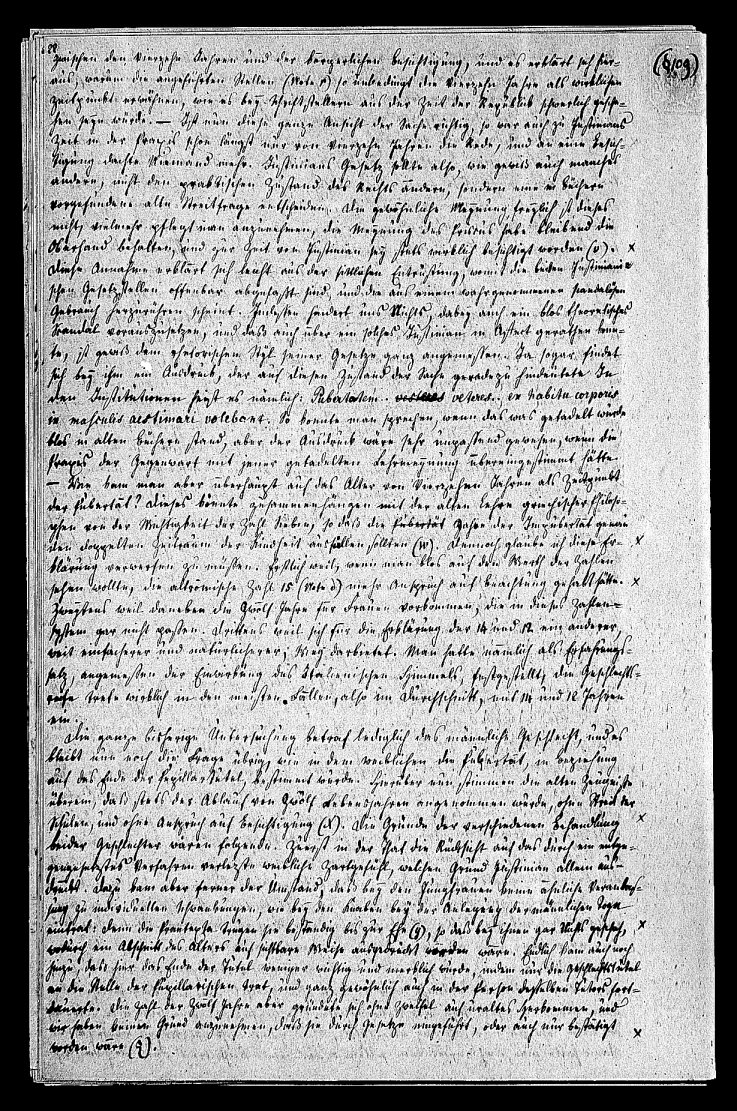 22
(8,09)
zwischen den vierzehn Jahren und der körperlichen Besichtigung, und es erklärt sich hier-
aus, warum die angeführten Stellen (Note p) so unbedingt die vierzehn Jahre als wirklichen
Zeitpunkt erwähnen, wie es bey Schriftstellern aus der Zeit der Republik schwerlich gesche-
hen seyn würde. — Ist nun diese ganze Ansicht der Sache richtig, so war auch zu Justinians
Zeit in der Praxis schon längst nur von vierzehn Jahren die Rede, und an eine Besich-
tigung dachte Niemand mehr. Justinians Gesetz sollte also, wie gewiß auch manches
andere, nicht den praktischen Zustand des Rechts ändern, sondern eine in Büchern
vorgefundene alte Streitfrage entscheiden. Die gewöhnliche Meynung freylich ist dieses
nicht, vielmehr pflegt man anzunehmen, die Meynung des Priscus habe bleibend die
Oberhand behalten, und zur Zeit von Justinian sey stets wirklich besichtigt worden (v). x
Diese Annahme erklärt sich leicht aus der sittlichen Entrüstung, womit die beiden Justiniani-
schen Gesetzstellen offenbar abgefaßt sind, und die aus einem wahrgenommenen scandalösen
Gebrauch herzurühren scheint. Indessen hindert uns Nichts, dabey auch ein blos theoretisches
Scandal vorauszusetzen, und daß auch über ein solches Justinian in Affect gerathen konn-
te, ist gewiß dem rhetorischen Styl seiner Gesetze ganz angemessen. Ja sogar findet
sich bey ihm ein Ausdruck, der auf diesen Zustand der Sache geradezu hindeutete. In
den Institutionen heißt es nämlich: Pubertatem .. veteres .. ex habitu corporis
in masculis aestimari volebant. So konnte man sprechen, wenn das was getadelt wurde
blos in alten Büchern stand, aber der Ausdruck wäre sehr unpassend gewesen, wenn die
Praxis der Gegenwart mit jener getadelten Lehrmeynung übereingestimmt hätte
— Wie kam man aber überhaupt auf das Alter von vierzehn Jahren als Zeitpunkt
der Pubertät? Dieses könnte zusammenhängen mit der alten Lehre griechischer Philoso-
phen von der Wichtigkeit der Zahl Sieben, so daß die Jahre der Impubertät genau
den doppelten Zeitraum der Kindheit ausfüllen sollten (w). Dennoch glaube ich diese Er- x
klärung verwerfen zu müssen. Erstlich weil, wenn man blos auf den Werth der Zahlen
sehen wollte, die altrömische Zahl 15 (Note d) mehr Anspruch auf Beachtung gehabt hätte. x
Zweytens weil daneben die Zwölf Jahre für Frauen vorkommen, die in dieses Zahlen-
system gar nicht passen. Drittens weil sich für die Erklärung der 14 und 12 ein anderer,
weit einfacherer und natürlicherer, Weg darbietet. Man hatte nämlich als Erfahrungs-
satz, angemessen der Einwirkung des Italienischen Himmels, festgestellt, die Geschlechts-
reife trete wirklich in den meisten Fällen, also im Durchschnitt, mit 14 und 12 Jahren
ein.
Die ganze bisherige Untersuchung betraf lediglich das männliche Geschlecht, und es
bleibt nun noch die Frage übrig, wie in dem weiblichen die Pubertät, in Beziehung
auf das Ende der Pupillartutel, bestimmt wurde. Hierüber nun stimmen die alten Zeugnisse
überein, daß stets der Ablauf von Zwölf Lebensjahren angenommen wurde, ohne Streit der
Schulen, und ohne Anspruch auf Besichtigung (x). Die Gründe der verschiedenen Behandlung x
beider Geschlechter waren folgende. Zuerst in der That die Rücksicht auf das durch ein entge-
gengesetztes Verfahren verletzte weibliche Zartgefühl, welchen Grund Justinian allein aus-
drückt. Dazu kam aber ferner der Umstand, daß bey den Jungfrauen keine ähnliche Veranlas-
sung zu individuellen Schwankungen, wie bey den Knaben bey der Anlegung der männlichen Toga
eintrat: denn die Praetexta trugen sie beständig bis zur Ehe (y), so daß bey ihnen gar Nichts geschah, x
wodurch ein Abschnitt des Alters auf sichtbare Weise ausgedrückt worden wäre. Endlich kam auch noch
hinzu, daß hier das Ende der Tutel weniger wichtig und merklich wurde, indem nur die Geschlechtstutel
an die Stelle der Pupillarischen trat, und ganz gewöhnlich auch in der Person desselben Tutors fort-
dauerte. Die Zahl der Zwölf Jahre aber gründete sich ohne Zweifel auf uraltes Herkommen, und
wir haben keinen Grund anzunehmen, daß sie durch Gesetze eingeführt, oder auch nur bestätigt x
worden wäre (z).